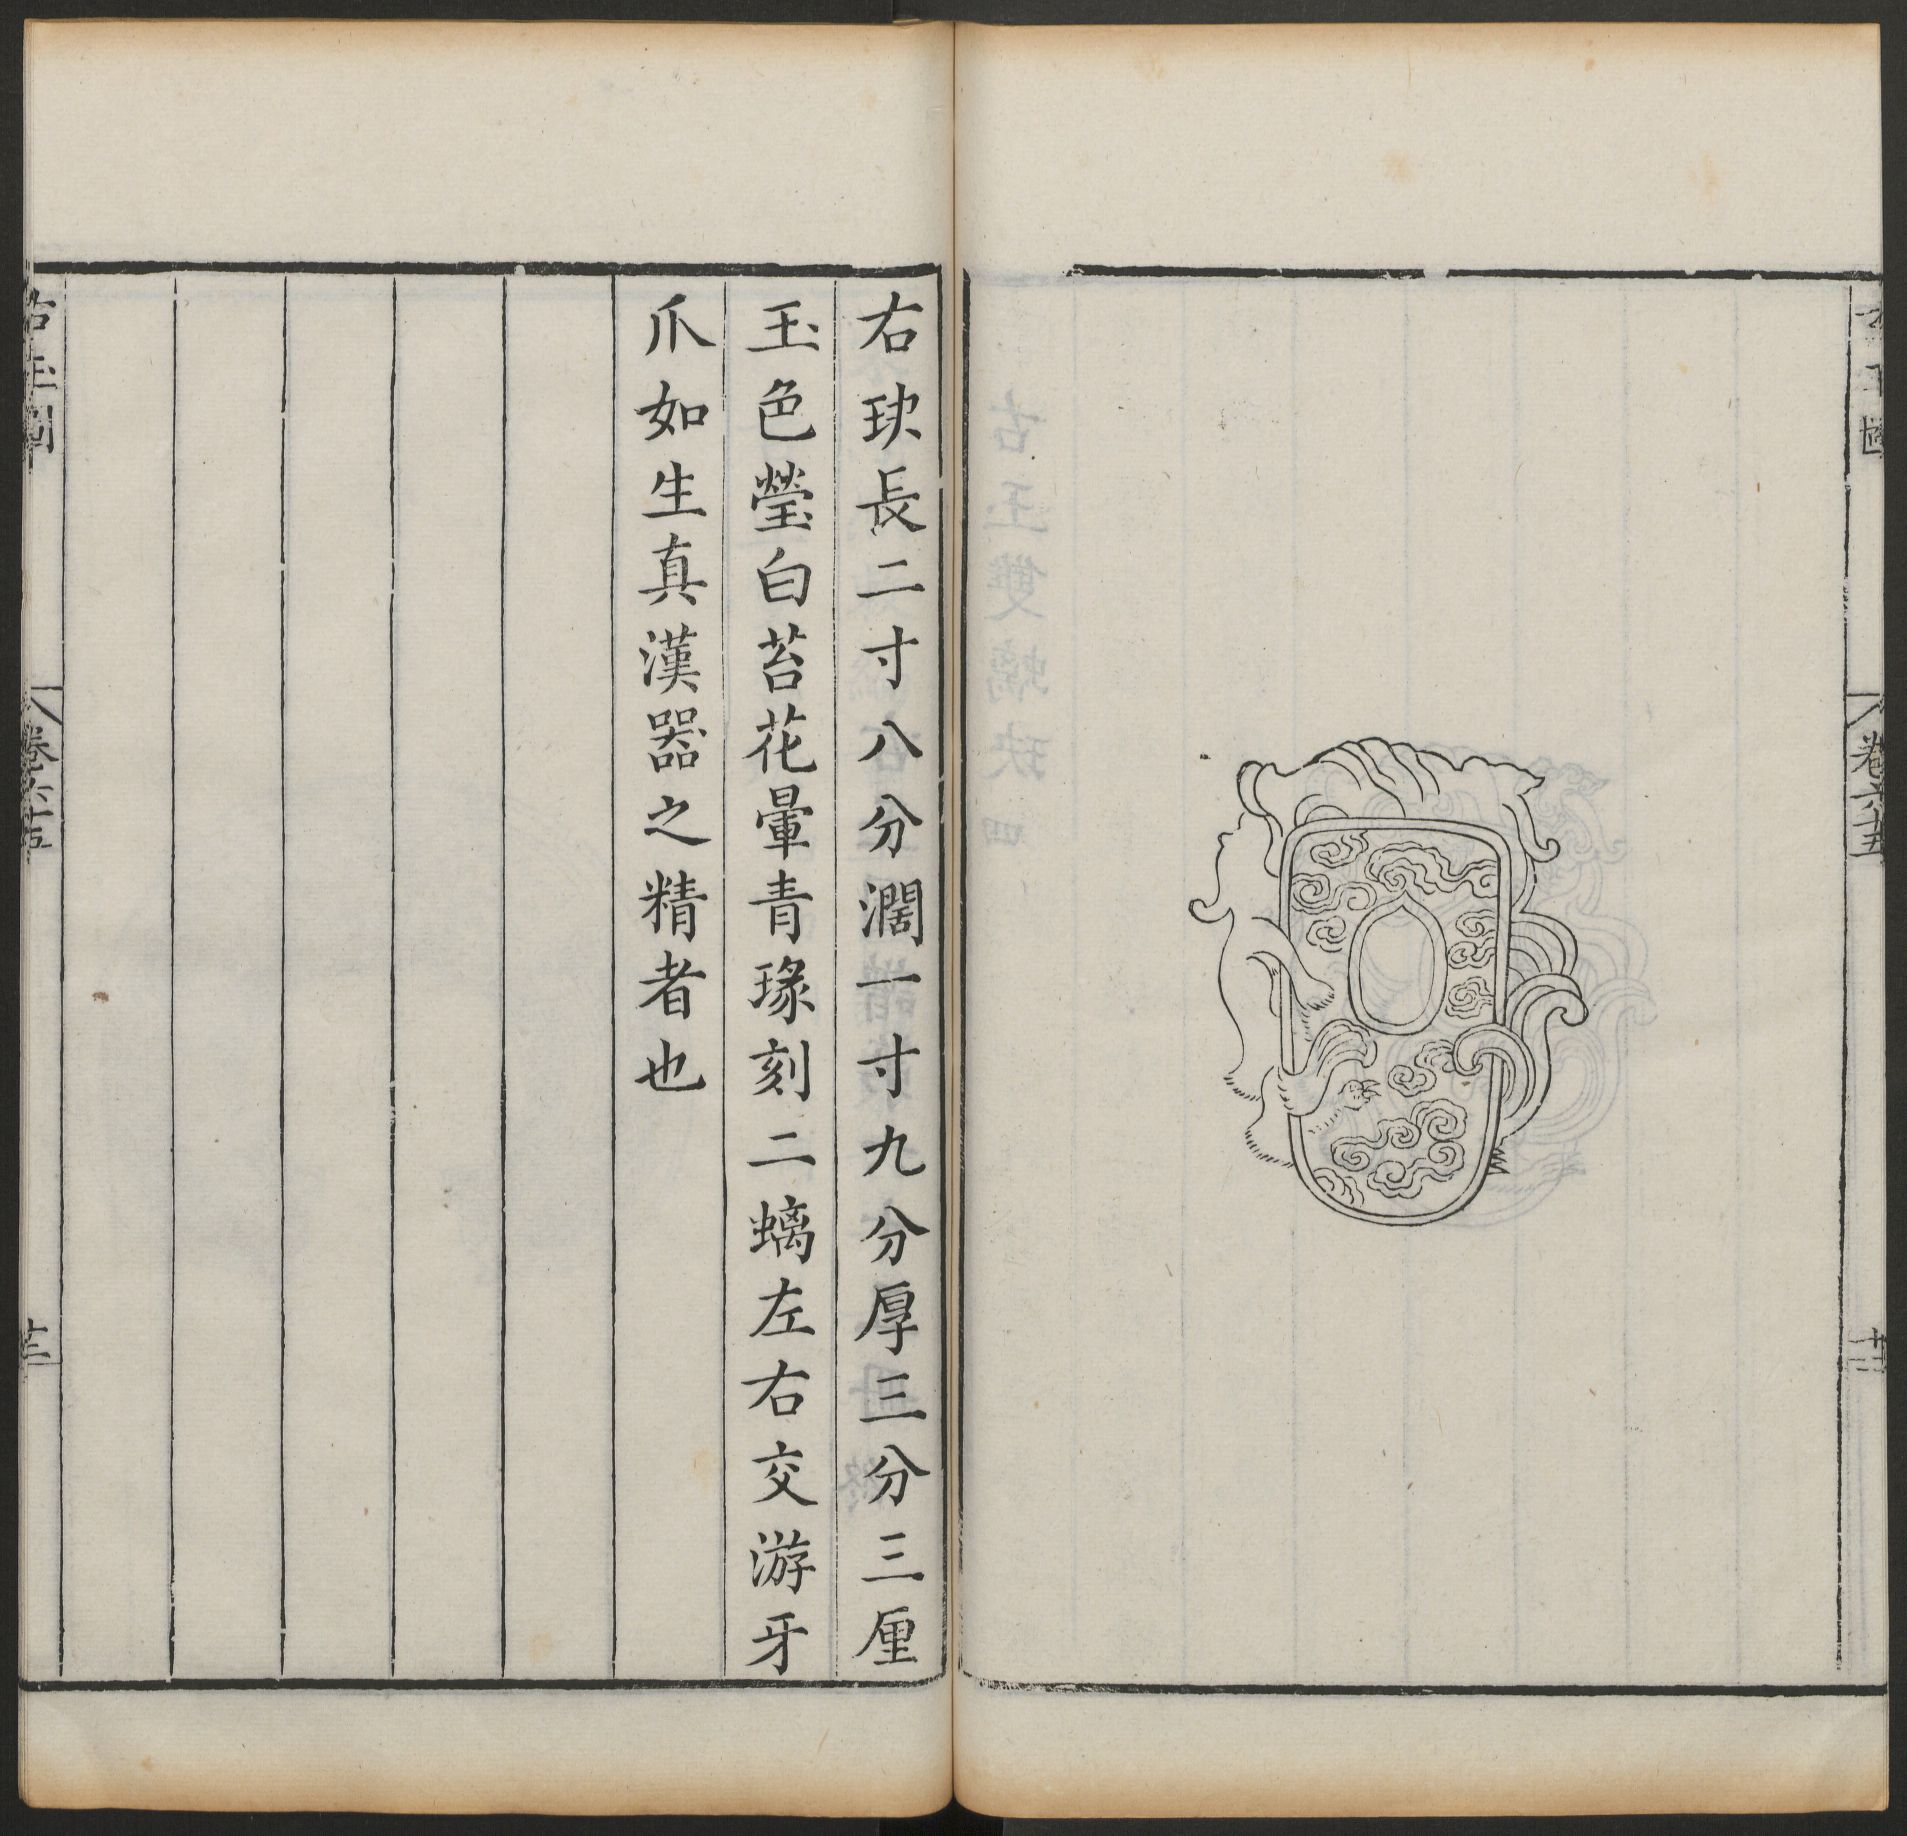 古玉圖
卷六十五
右玦長二寸八分濶一寸九分厚三分三厘
玉色瑩白苔花暈青瑑刻二螭左右交游牙
爪如生真漢器之精者也
古玉圖
卷六十五